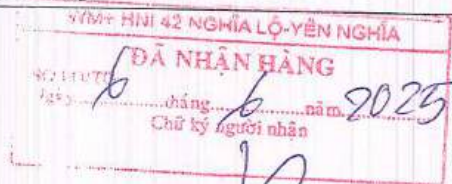 WM+ HNI 42 NGHĨA LỘ-YÊN NGHĨA
ĐÃ NHẬN HÀNG
Ngày 6 tháng 6 năm 2025
Chữ ký người nhận